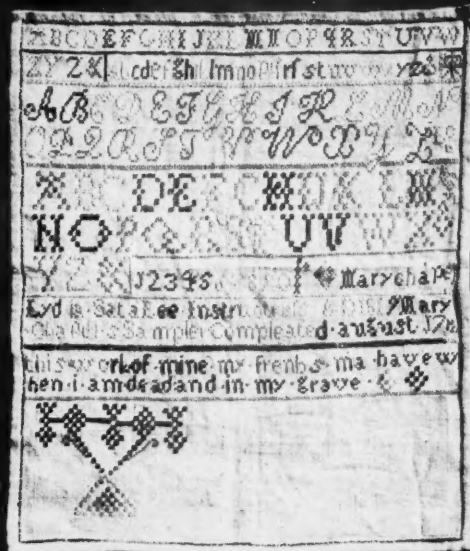 ABCDEFGHIJKLMNOPQRSTUVW
ZYZ& abcdefghilmnopqrfstuvwxyz&
ABCDEFGHIKLMN
OPQRSTVWXYZ
ABCDEFGHIKLM
NOPQRSTUVWX
YZ& 12345 Marychapel
Lyd is Instru Mary
Sampler Compleated·august
this·work·of·mine·my·frenbs·ma·have·w
hen·i·am·dead·and·in·my·grave